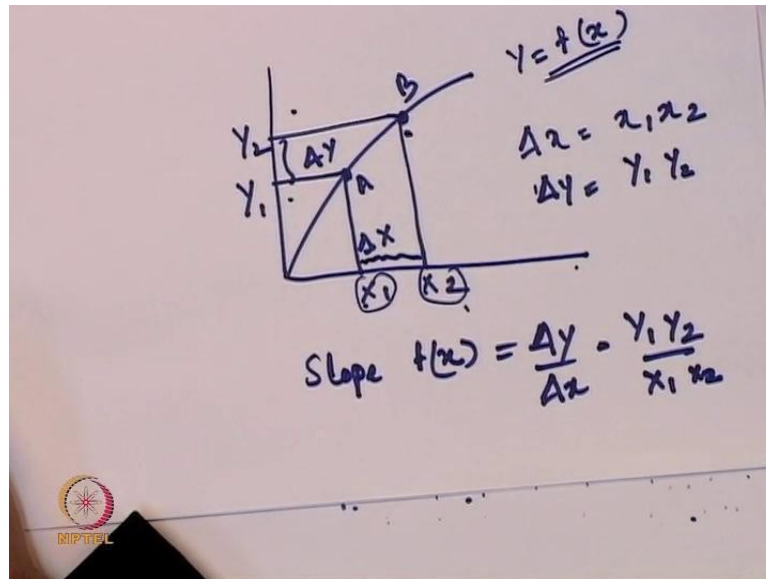 Y = f(x)
B
Y2
ΔY
Y1
A
Δx = x1 x2
ΔY = Y1 Y2
ΔX
X1 X2
Slope f(x) = Δy/Δx = Y1 Y2/x1 x2
NPTEL